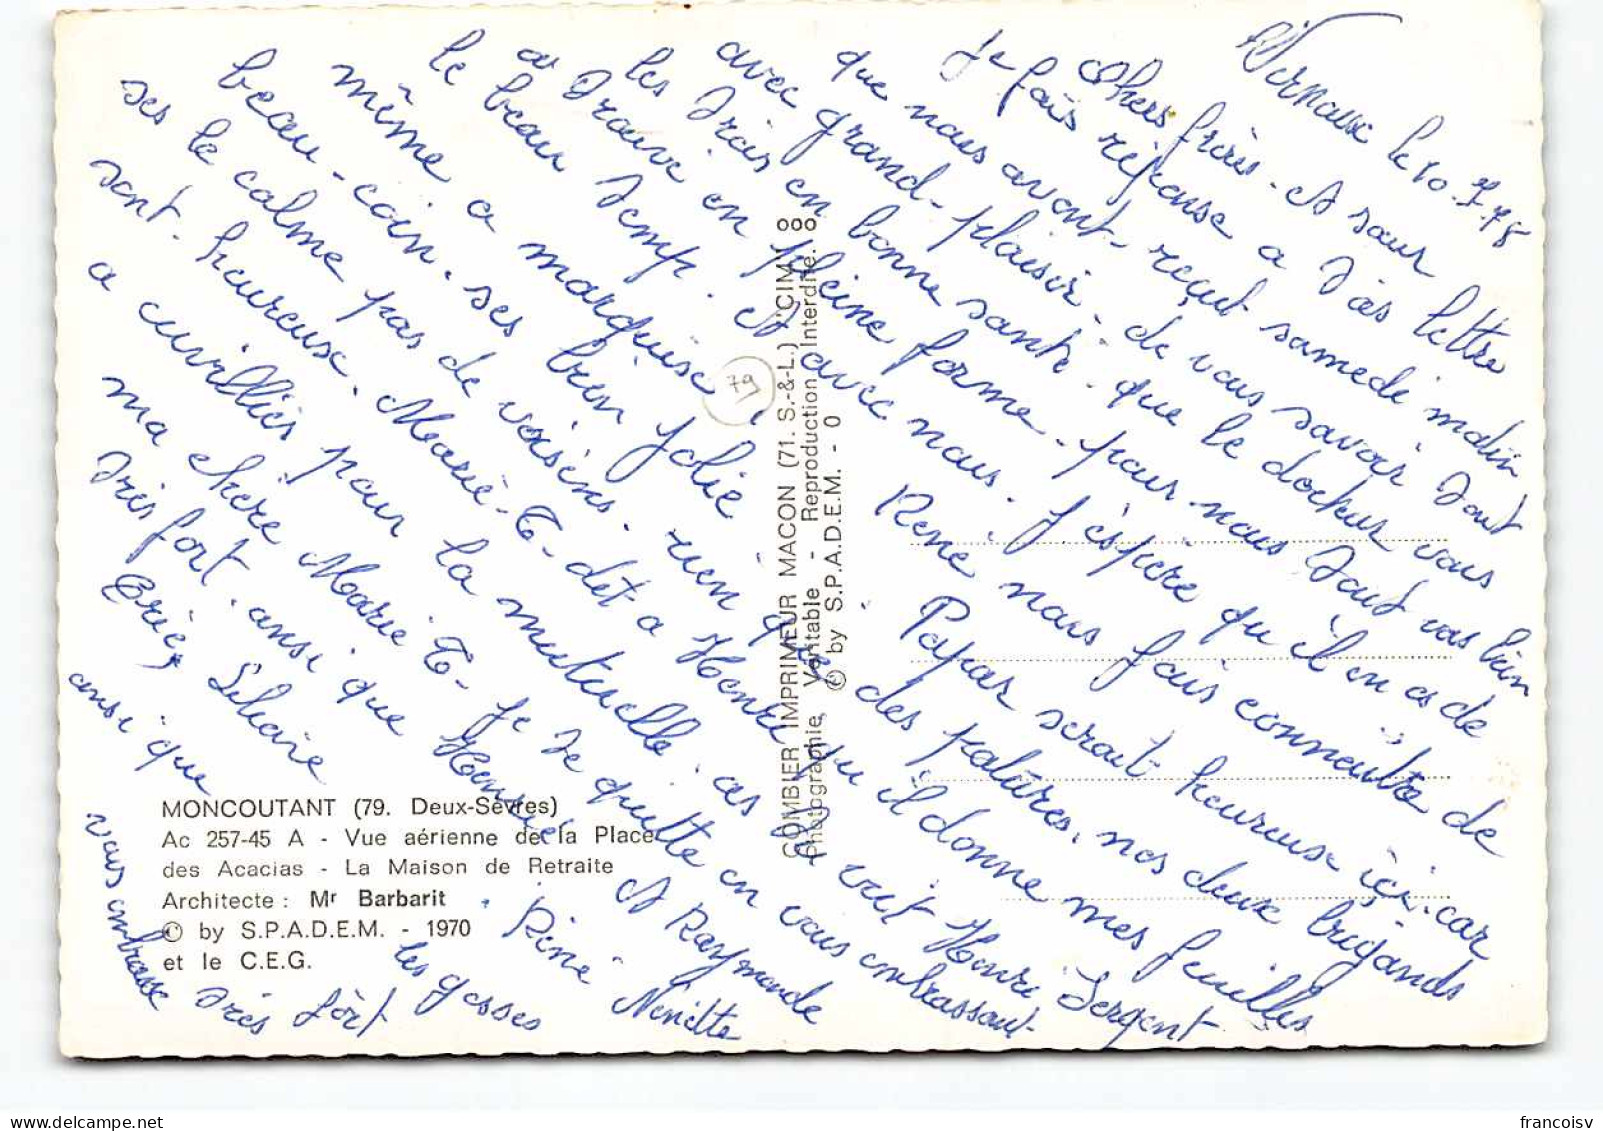 Vernoux le 10.7.78
Chers frère. et sœur
Je fais réponse a tès lettre
que nous avont reçut samedi matin
avec grand-plaisir. de vous savoir tout
les trois en bonne santé. que le docteur vous
a trouvé en pleine forme. pour nous tout vas bien
le beau temp. et avec nous. J'éspère qu'il en es de
même a marquise.
René nous fais conneitre de
beau-coin. ses bien jolie
Papas serait heureuse içi. car
ses le calme pas de voisins. rien que des patures. nos deux brigands
sont. heureuse. Marie-T- dit a Henri qu'il donne mes feuilles
a cuvilliés pour la mutuelle. cas
Henri Sergent
ma chère Marie T- Je te quitte en vous embrassant
très fort. ansi que
Eric, Liliane
et Raymonde
ansi que
René Nenétte
les gosses
vous embrasse très fort
MONCOUTANT (79. Deux-Sèvres)
Ac 257-45 A - Vue aérienne de la Place
des Acacias - La Maison de Retraite
Architecte : Mr Barbarit
© by S.P.A.D.E.M. - 1970
et le C.E.G.
COMBIER IMPRIMEUR MACON (71. S.-&-L.) "CIM"
Photographie Véritable - Reproduction Interdite.
© by S.P.A.D.E.M. - 0
79
francoisv